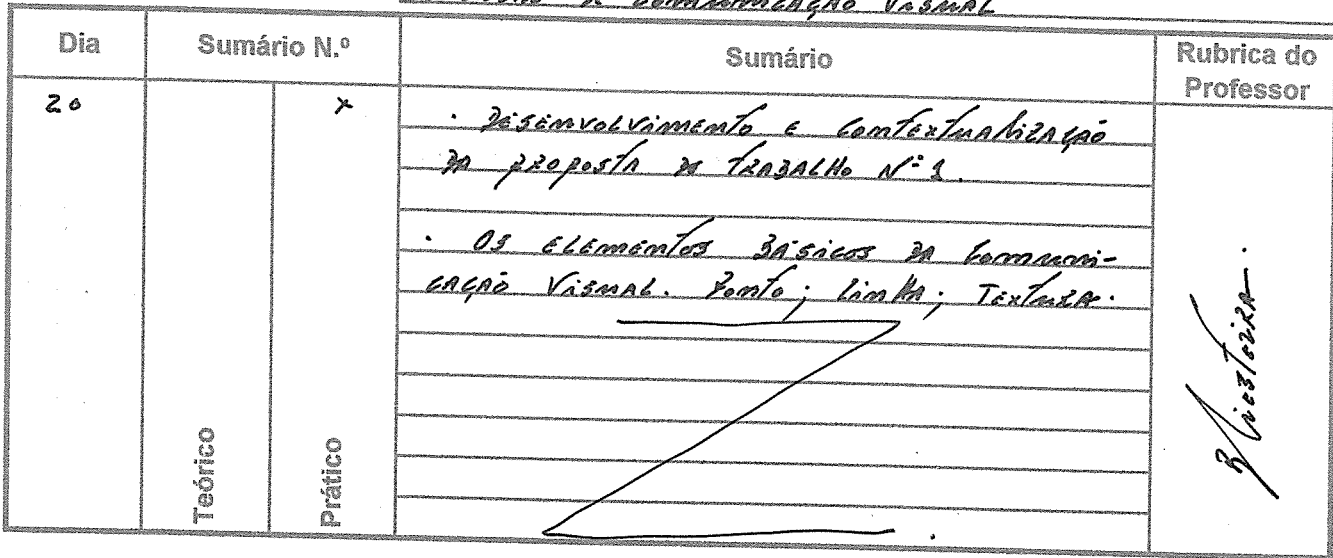 DE COMUNICAÇÃO VISUAL
Dia
Sumário N.º
Sumário
Rubrica do
Professor
20
x
· DESENVOLVIMENTO E CONTEXTUALIZAÇÃO
DA PROPOSTA DE TRABALHO Nº 1.
· OS ELEMENTOS BÁSICOS DA COMUNI-
CAÇÃO VISUAL. PONTO; LINHA; TEXTURA.
Teórico
Prático